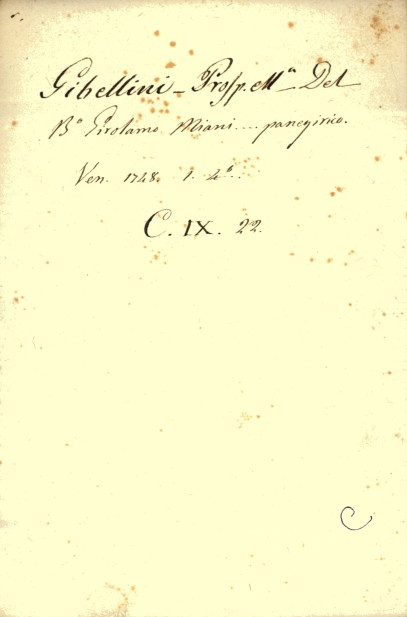 Gibellini - Prosp.e M.a - Del
B.o Girolamo Miani ... panegirico.
Ven. 1748. 1. 4.o.
C. IX. 22.